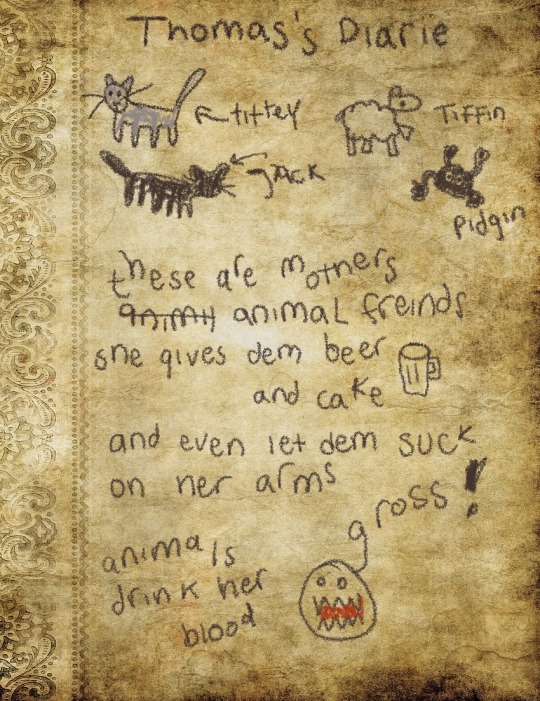 Thomas's Diarie
tittey
Tiffin
Jack
Pidgin
these are mothers
animal freinds
she gives dem beer
and cake
and even let dem suck
on her arms
gross!
animals
drink her
blood